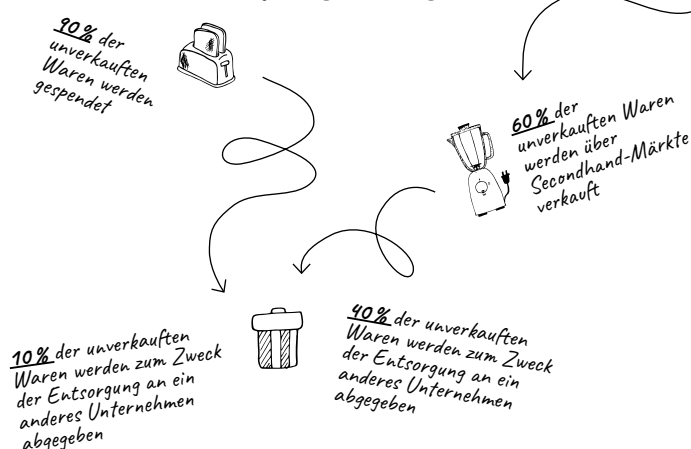 90% der
unverkauften
Waren werden
gespendet
60% der
unverkauften Waren
werden über
Secondhand-Märkte
verkauft
10% der unverkauften
Waren werden zum Zweck
der Entsorgung an ein
anderes Unternehmen
abgegeben
40% der unverkauften
Waren werden zum Zweck
der Entsorgung an ein
anderes Unternehmen
abgegeben